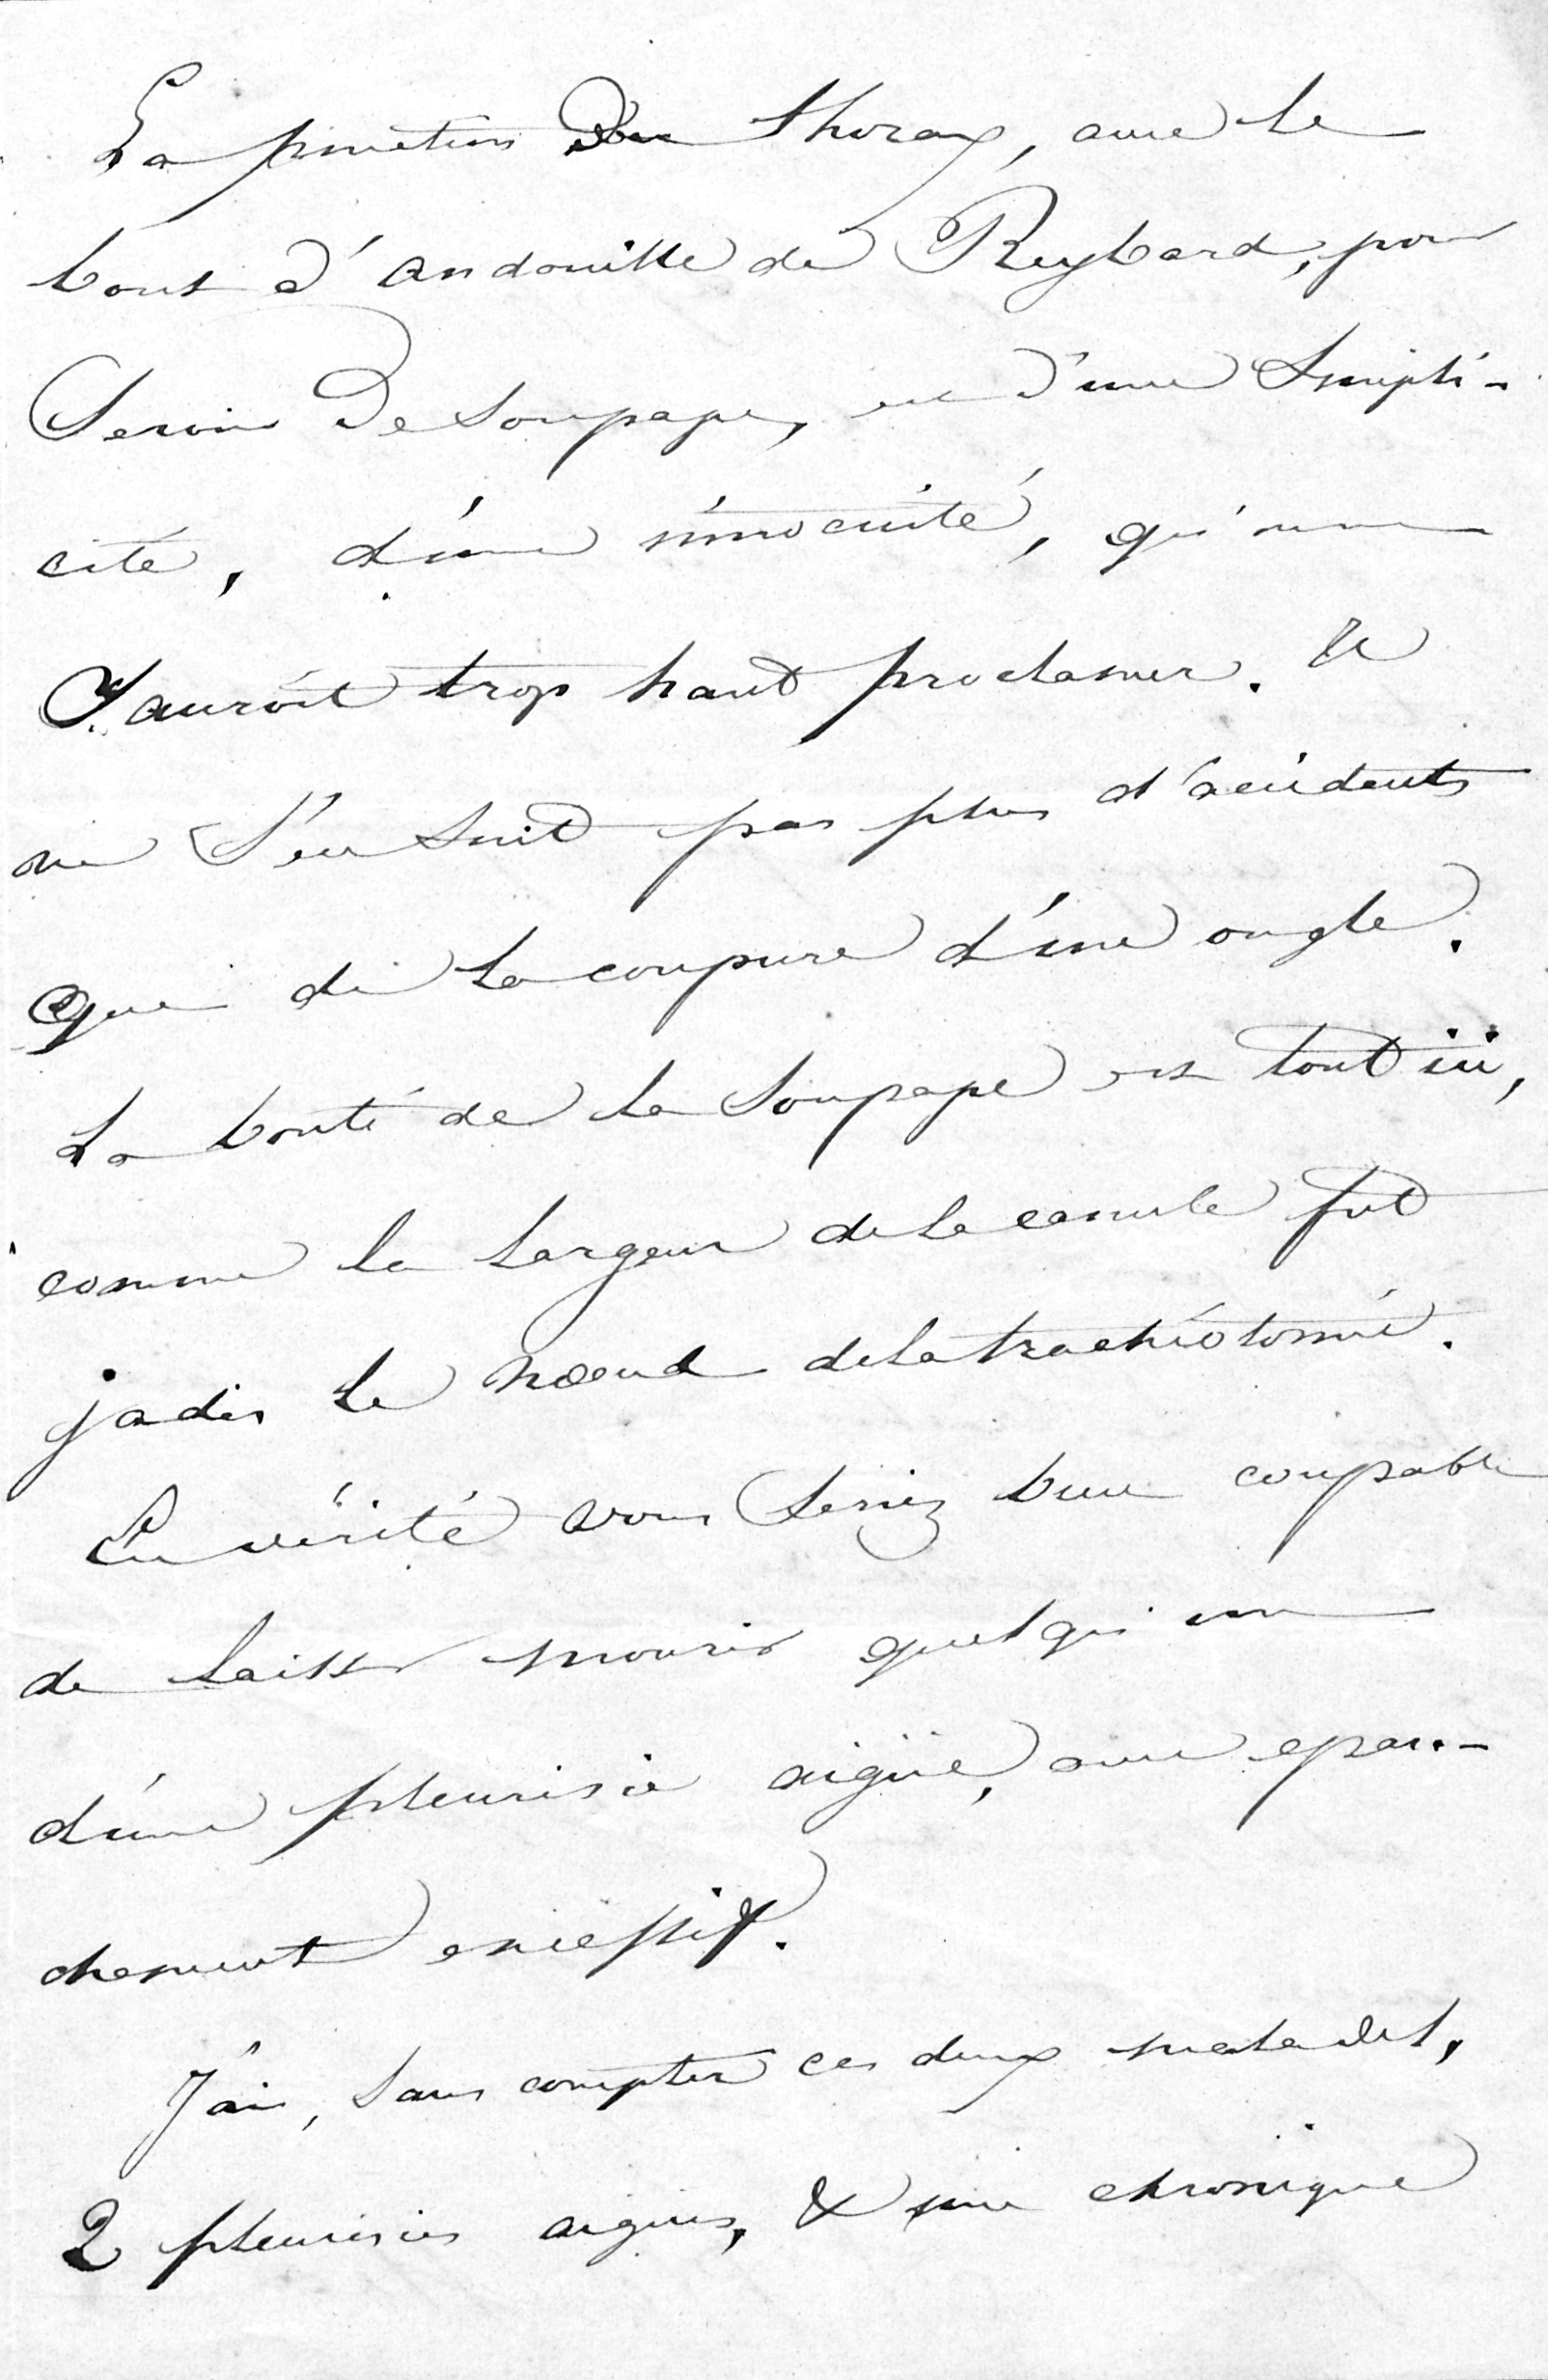 La ponction du thorax, avec le
bout d'andouille de Reybard, pour
servir de soupape, est d'une simpli-
cité, d'une innocuité, qu'on ne
sauroit trop haut proclamer. Il
ne s'en suit pas plus d'accidents
que de la coupure d'une ongle.
La bonté de la soupape est tout ici,
comme la largeur de la canule fut
jadis le nœud de la trachéotomie.
En vérité vous seriez bien coupable
de laisser mourir quelqu'un
d'une pleurisie aigüe, avec epan-
chement excessif.
J'ai, sans compter ces deux malades,
2 pleurisies aigues, & une chronique